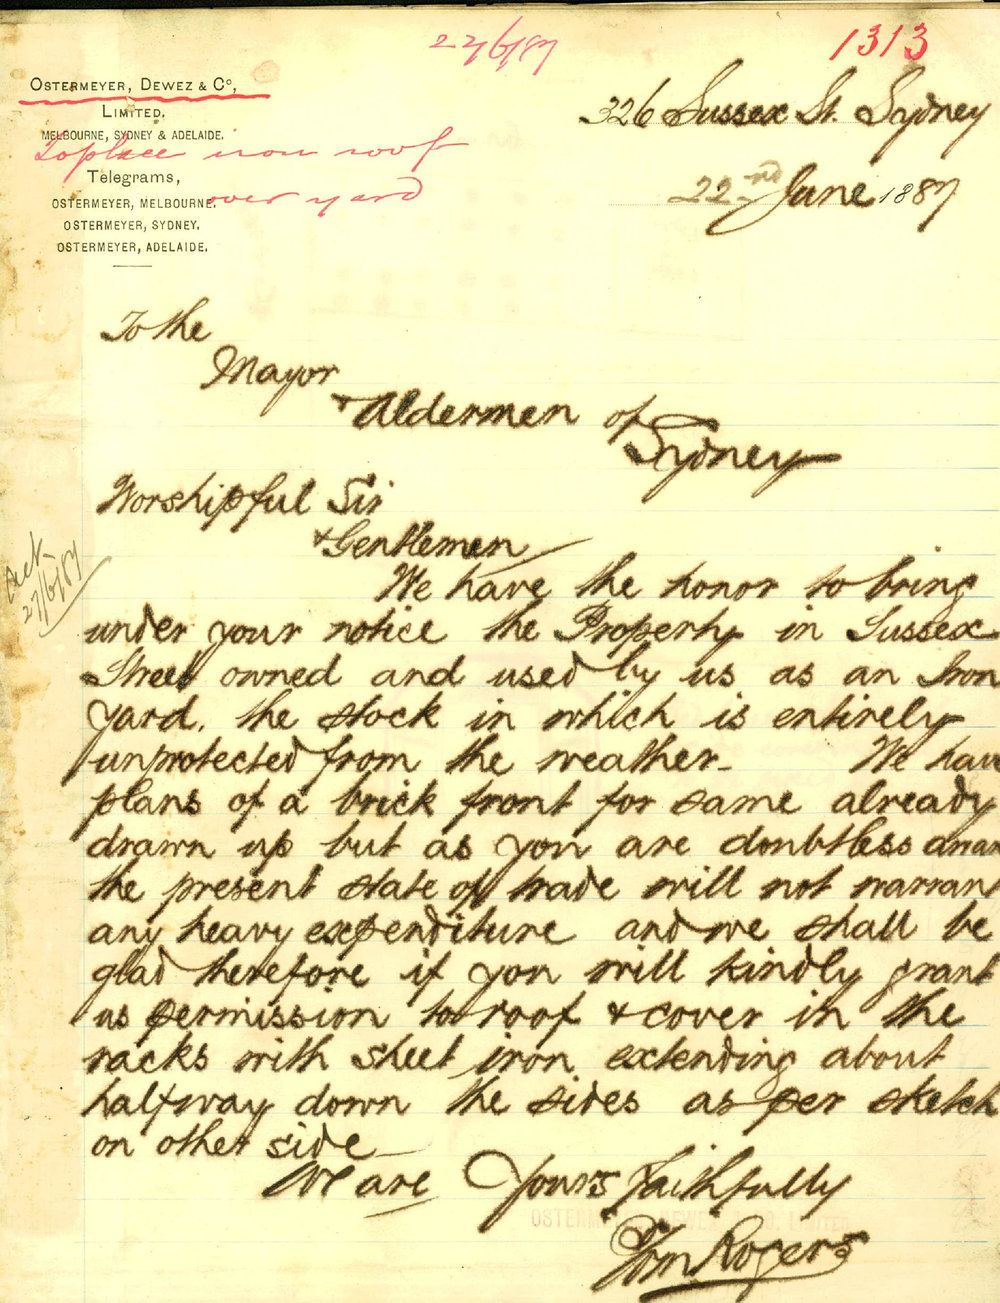 22/6/87
1313
OSTERMEYER, DEWEZ & Co,
LIMITED.
MELBOURNE, SYDNEY & ADELAIDE.
To place iron roof
Telegrams,
OSTERMEYER, MELBOURNE.
over yard
OSTERMEYER, SYDNEY.
OSTERMEYER, ADELAIDE.
326 Sussex St. Sydney
22nd June 1887
To the
Mayor
& Aldermen of
Sydney
Worshipful Sir
& Gentlemen
27/6/87
We have the honor to bring
under your notice the Property in Sussex
Street owned and used by us as an Iron
Yard, the stock in which is entirely
unprotected from the weather_ We have
plans of a brick front for same already
drawn up but as you are doubtless awar
the present state of trade will not warrant
any heavy expenditure and we shall be
glad therefore if you will kindly grant
us permission to roof & cover in the
racks with sheet iron extending about
halfway down the sides as per sketch
on other side_
We are Yours Faithfully
OSTERMEYER, DEWEZ & CO. LIMITED
Wm Rogers